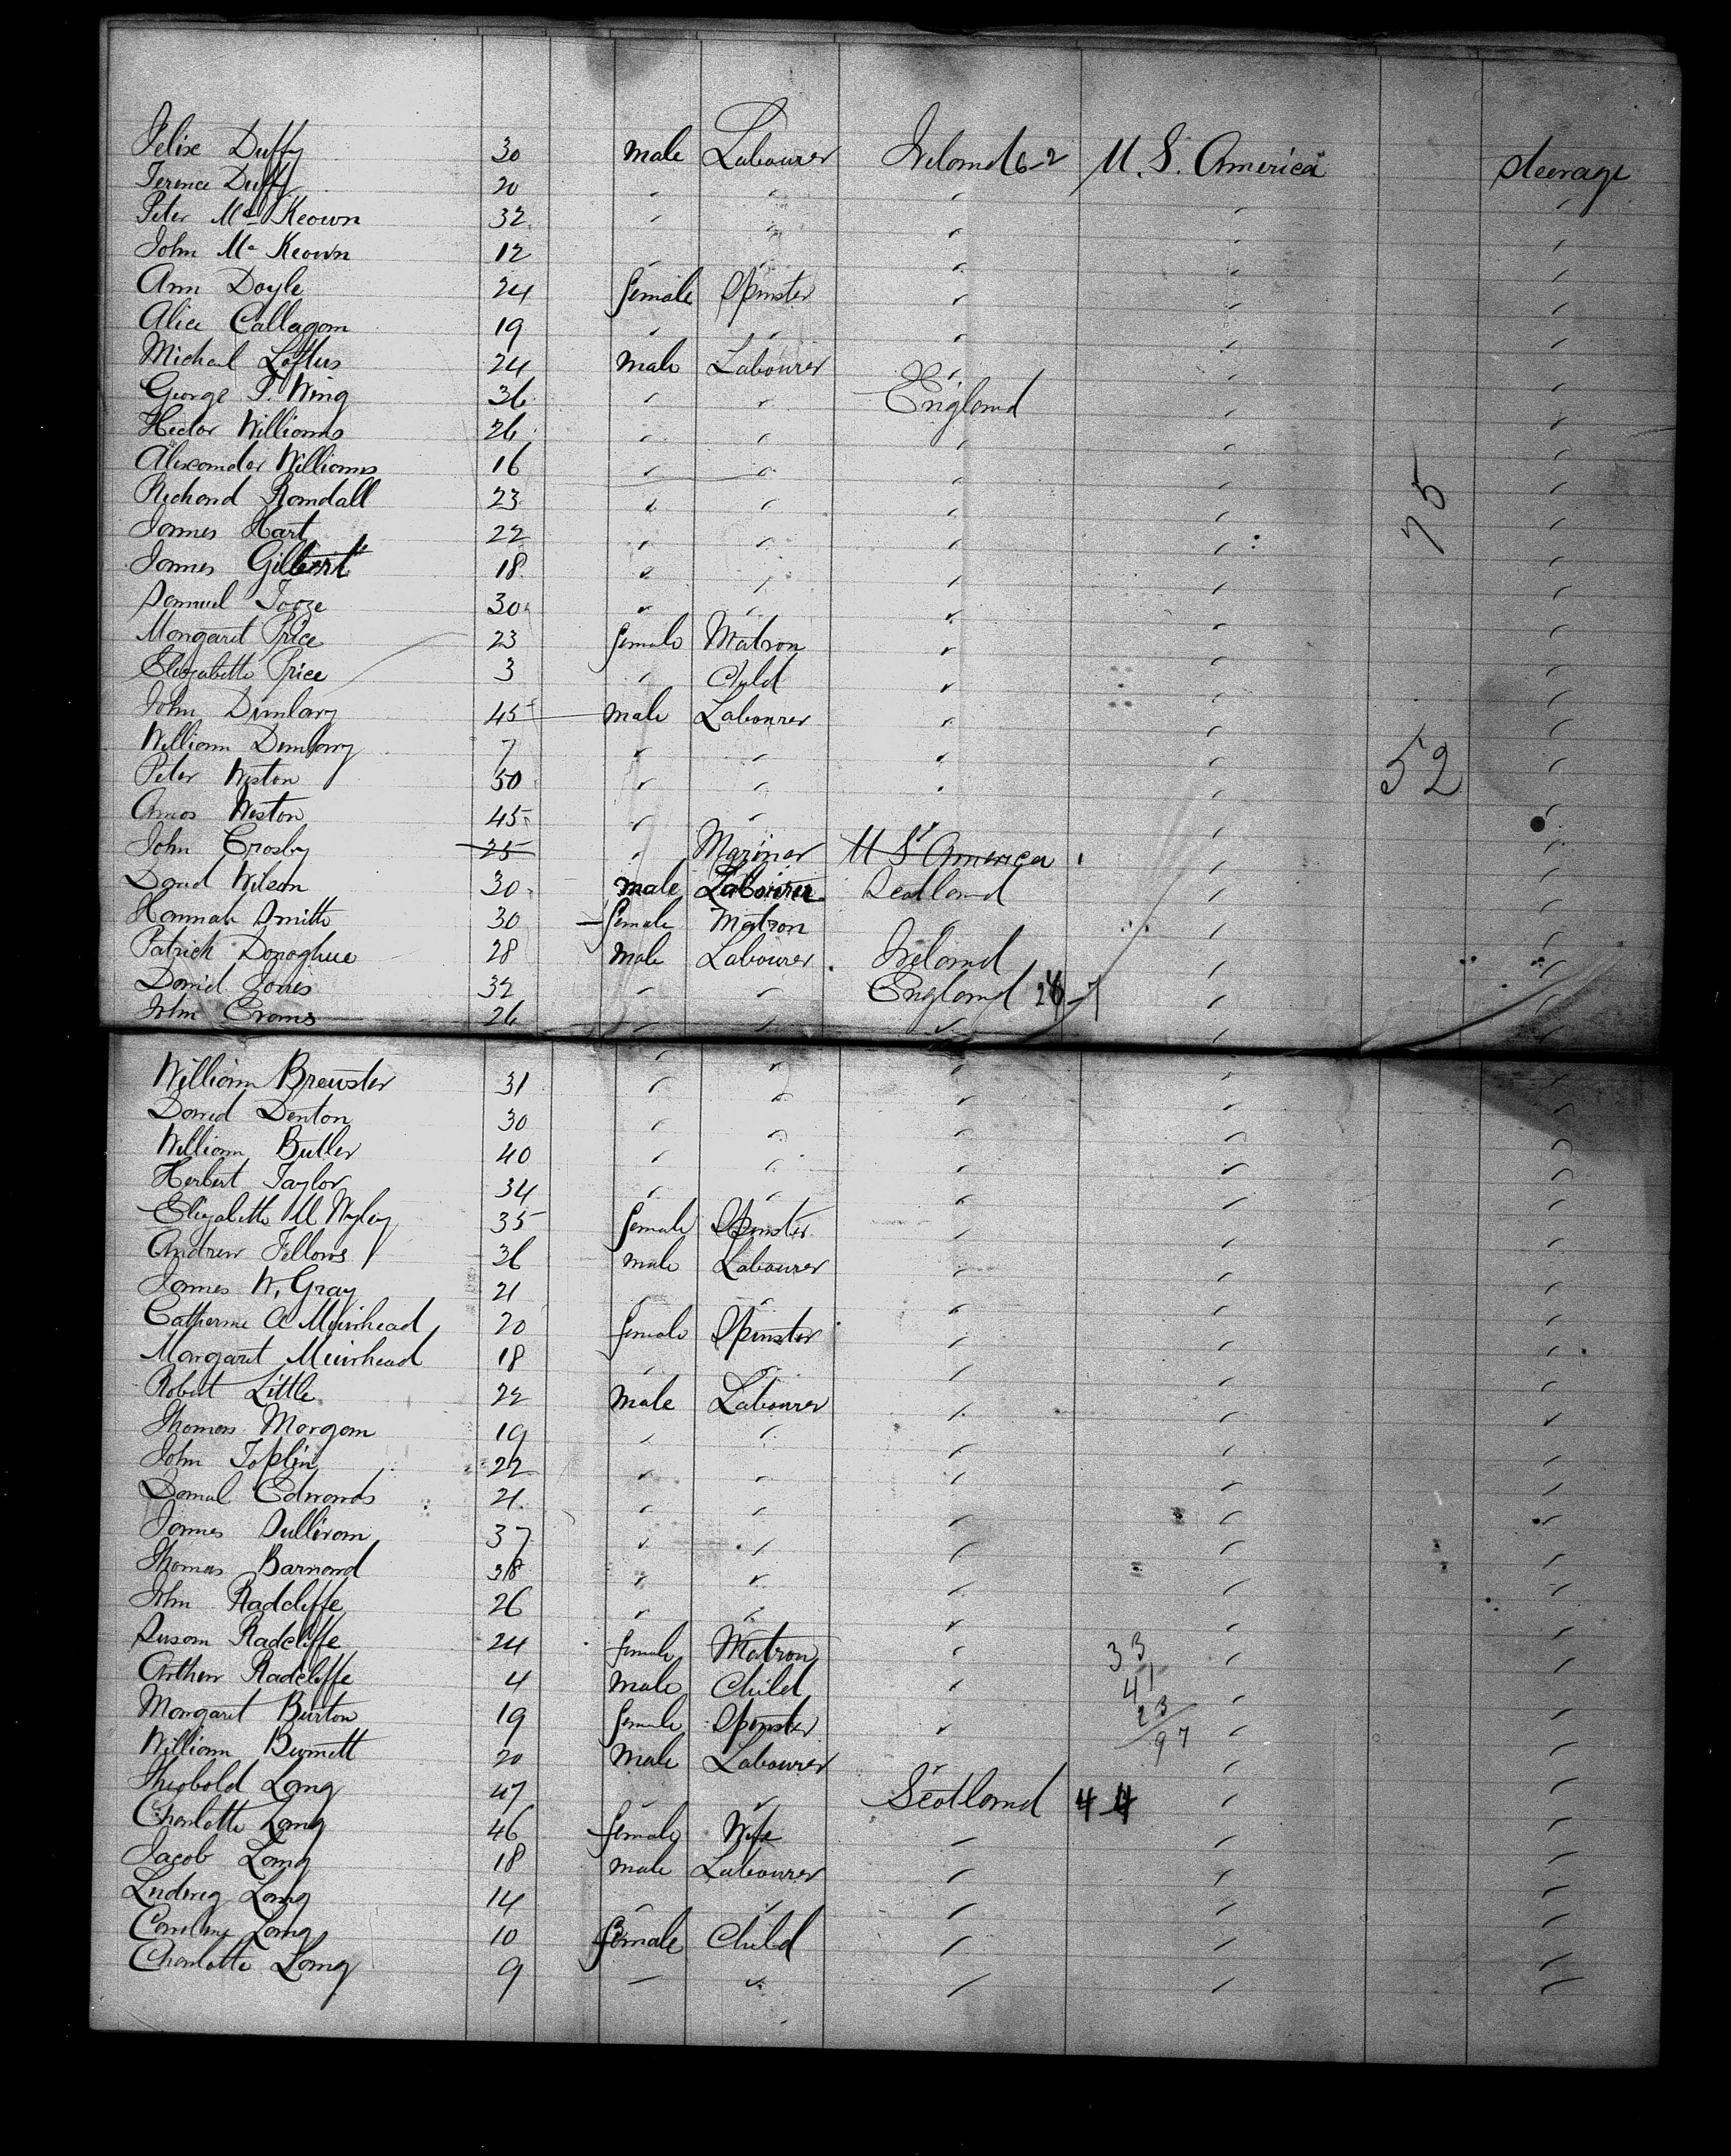 Felix Duffy 30 male Labourer Ireland 6-2 U.S. America Steerage
Terence Duffy 20 " " " " "
Peter Mc Keown 32 " " " " "
John Mc Keown 12 " " " " "
Ann Doyle 24 female Spinster " " "
Alice Callagan 19 " " " " "
Michael Loftus 24 male Labourer " " "
George P. Wing 36 " " England " "
Hector Williams 26 " " " " "
Alexander Williams 16 " " " " "
Richard Randall 23 " " " " 75 "
James Hart 22 " " " " "
James Gilbert 18 " " " " "
Samuel Tooze 30 " " " " "
Margaret Price 23 female Matron " " "
Elizabeth Price 3 " Child " " "
John Dunlavy 45 male Labourer " " "
William Dunlavy 7 " " " " "
Peter Weston 50 " " " " 52 "
Amos Weston 45 " " " " "
John Crosby 25 " Mariner U S America " "
David Wilson 30 male Labourer Scotland " "
Hannah Smith 30 female Matron " "
Patrick Donoghue 28 male Labourer Ireland " "
David Jones 32 " " England 28-7 " "
John Evans 26 " " " " "
William Brewster 31 " " " " "
David Denton 30 " " " " "
William Butler 40 " " " " "
Herbert Taylor 34 " " " " "
Elizabeth M Wyley 35 female Spinster " " "
Andrew Fellows 36 male Labourer " " "
James W. Gray 21 " " " " "
Catherine A Muirhead 20 female Spinster " " "
Margaret Muirhead 18 " " " " "
Robert Little 22 male Labourer " " "
Thomas Morgan 19 " " " " "
John Toplin 22 " " " " "
Daniel Edwards 21 " " " " "
James Sullivan 37 " " " " "
Thomas Barnard 38 " " " " "
John Radcliffe 26 " " " " "
Susan Radcliffe 24 female Matron " 33 " "
Arthur Radcliffe 4 male Child " 41 " "
Margaret Burton 19 female Spinster " 23 97 " "
William Burnett 20 male Labourer " " "
Theobold Lang 47 " " Scotland 4 4 " "
Charlotte Lang 46 female Wife " " "
Jacob Lang 18 male Labourer " " "
Ludwig Lang 14 " " " " "
Caroline Lang 10 female Child " " "
Charlotte Lang 9 " " " " "